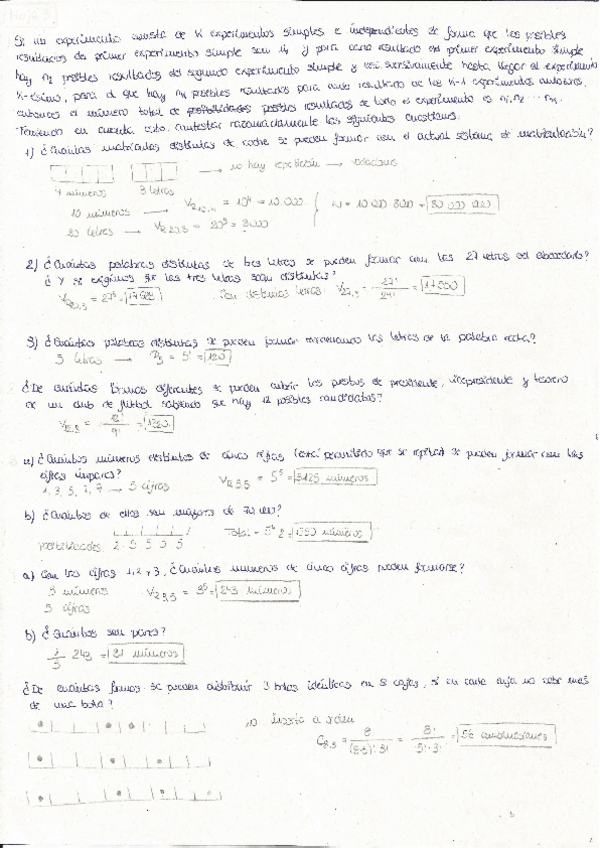 Si un experimento consta de K experimentos simples e independientes de forma que los posibles
resultados del primer experimento simple son n₁ y para cada resultado del primer experimento simple
hay n₂ posibles resultados del segundo experimento simple y así sucesivamente hasta llegar al experimento
K-ésimo, para el que hay posibles resultados para cada resultado de los K-1 experimentos anteriores,
entonces el número total de posibles resultados de todo el experimento es n₁·n₂ ···
Teniendo en cuenta esto, contestar razonadamente las siguientes cuestiones.
1) ¿Cuántas matrículas distintas de coche se pueden formar con el actual sistema de matriculación?
no hay repetición → variaciones
4 números 3 letras
10 números → = 10⁴ = 10.000
20 letras → = 20³ = 8000
N = 10 000 · 8000 = 80 000 000
2) ¿Cuántas palabras distintas de tres letras se pueden formar con las 27 letras del abecedario?
¿Y si exigimos que las tres letras sean distintas?
= 27³ = Con distintas letras V27,3 = 27! / 24! = 17550
3) ¿Cuántas palabras distintas se pueden formar reordenando las letras de la palabra ?
5 letras → P₅ = 5! = 120
¿De cuántas formas diferentes se pueden cubrir los puestos de presidente, vicepresidente y tesorero
de un club de fútbol sabiendo que hay 12 posibles candidatos?
= 12! / 9! = 1320
a) ¿Cuántos números distintos de cinco cifras (está permitido que se repitan) se pueden formar con las
cifras impares?
1, 3, 5, 7 → 5 cifras VR5,5 = 5⁵ = 3125 números
b) ¿Cuántos de ellos son mayores de 70.000?
posibilidades 2 · 5 5 5 5 Total = 5⁴ · 2 = números
a) Con las cifras 1, 2 y 3, ¿Cuántos números de cinco cifras pueden formarse?
3 números = 3⁵ = 243 números
5 cifras
b) ¿Cuántos son pares?
1/3 · 243 = 81 números
¿De cuántas formas se pueden distribuir 3 bolas idénticas en 8 cajas, si en cada caja no cabe más
de una bola?
no importa el orden
C8,3 = 8! / (8-3)! · 3! = 8! / 5! · 3! = 56 combinaciones